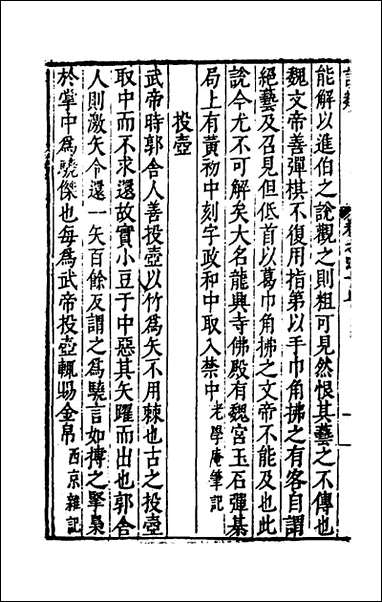 能解以進伯之說觀之則粗可見然恨其藝之不傳也
魏文帝善彈棋不復用指第以手巾角拂之有客自謂
絕藝及召見但低首以葛巾角拂之文帝不能及也此
說今尤不可解矣大名龍興寺佛殿有魏宮玉石彈棊
局上有黃初中刻字政和中取入禁中 老學庵筆記
投壺
武帝時郭舍人善投壺以竹為矢不用棘也古之投壺
取中而不求還故實小豆于中惡其矢躍而出也郭舍
人則激矢令還一矢百餘反謂之為驍言如摶之掔梟
於掌中為驍傑也每為武帝投壺輒賜金帛 西京雜記